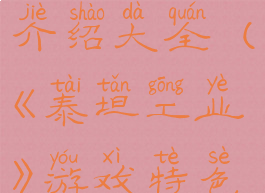 jiè shào dà quán
介绍大全(
tài tǎn gōng yè
《泰坦工业
yóu xì tè sè
》游戏特色